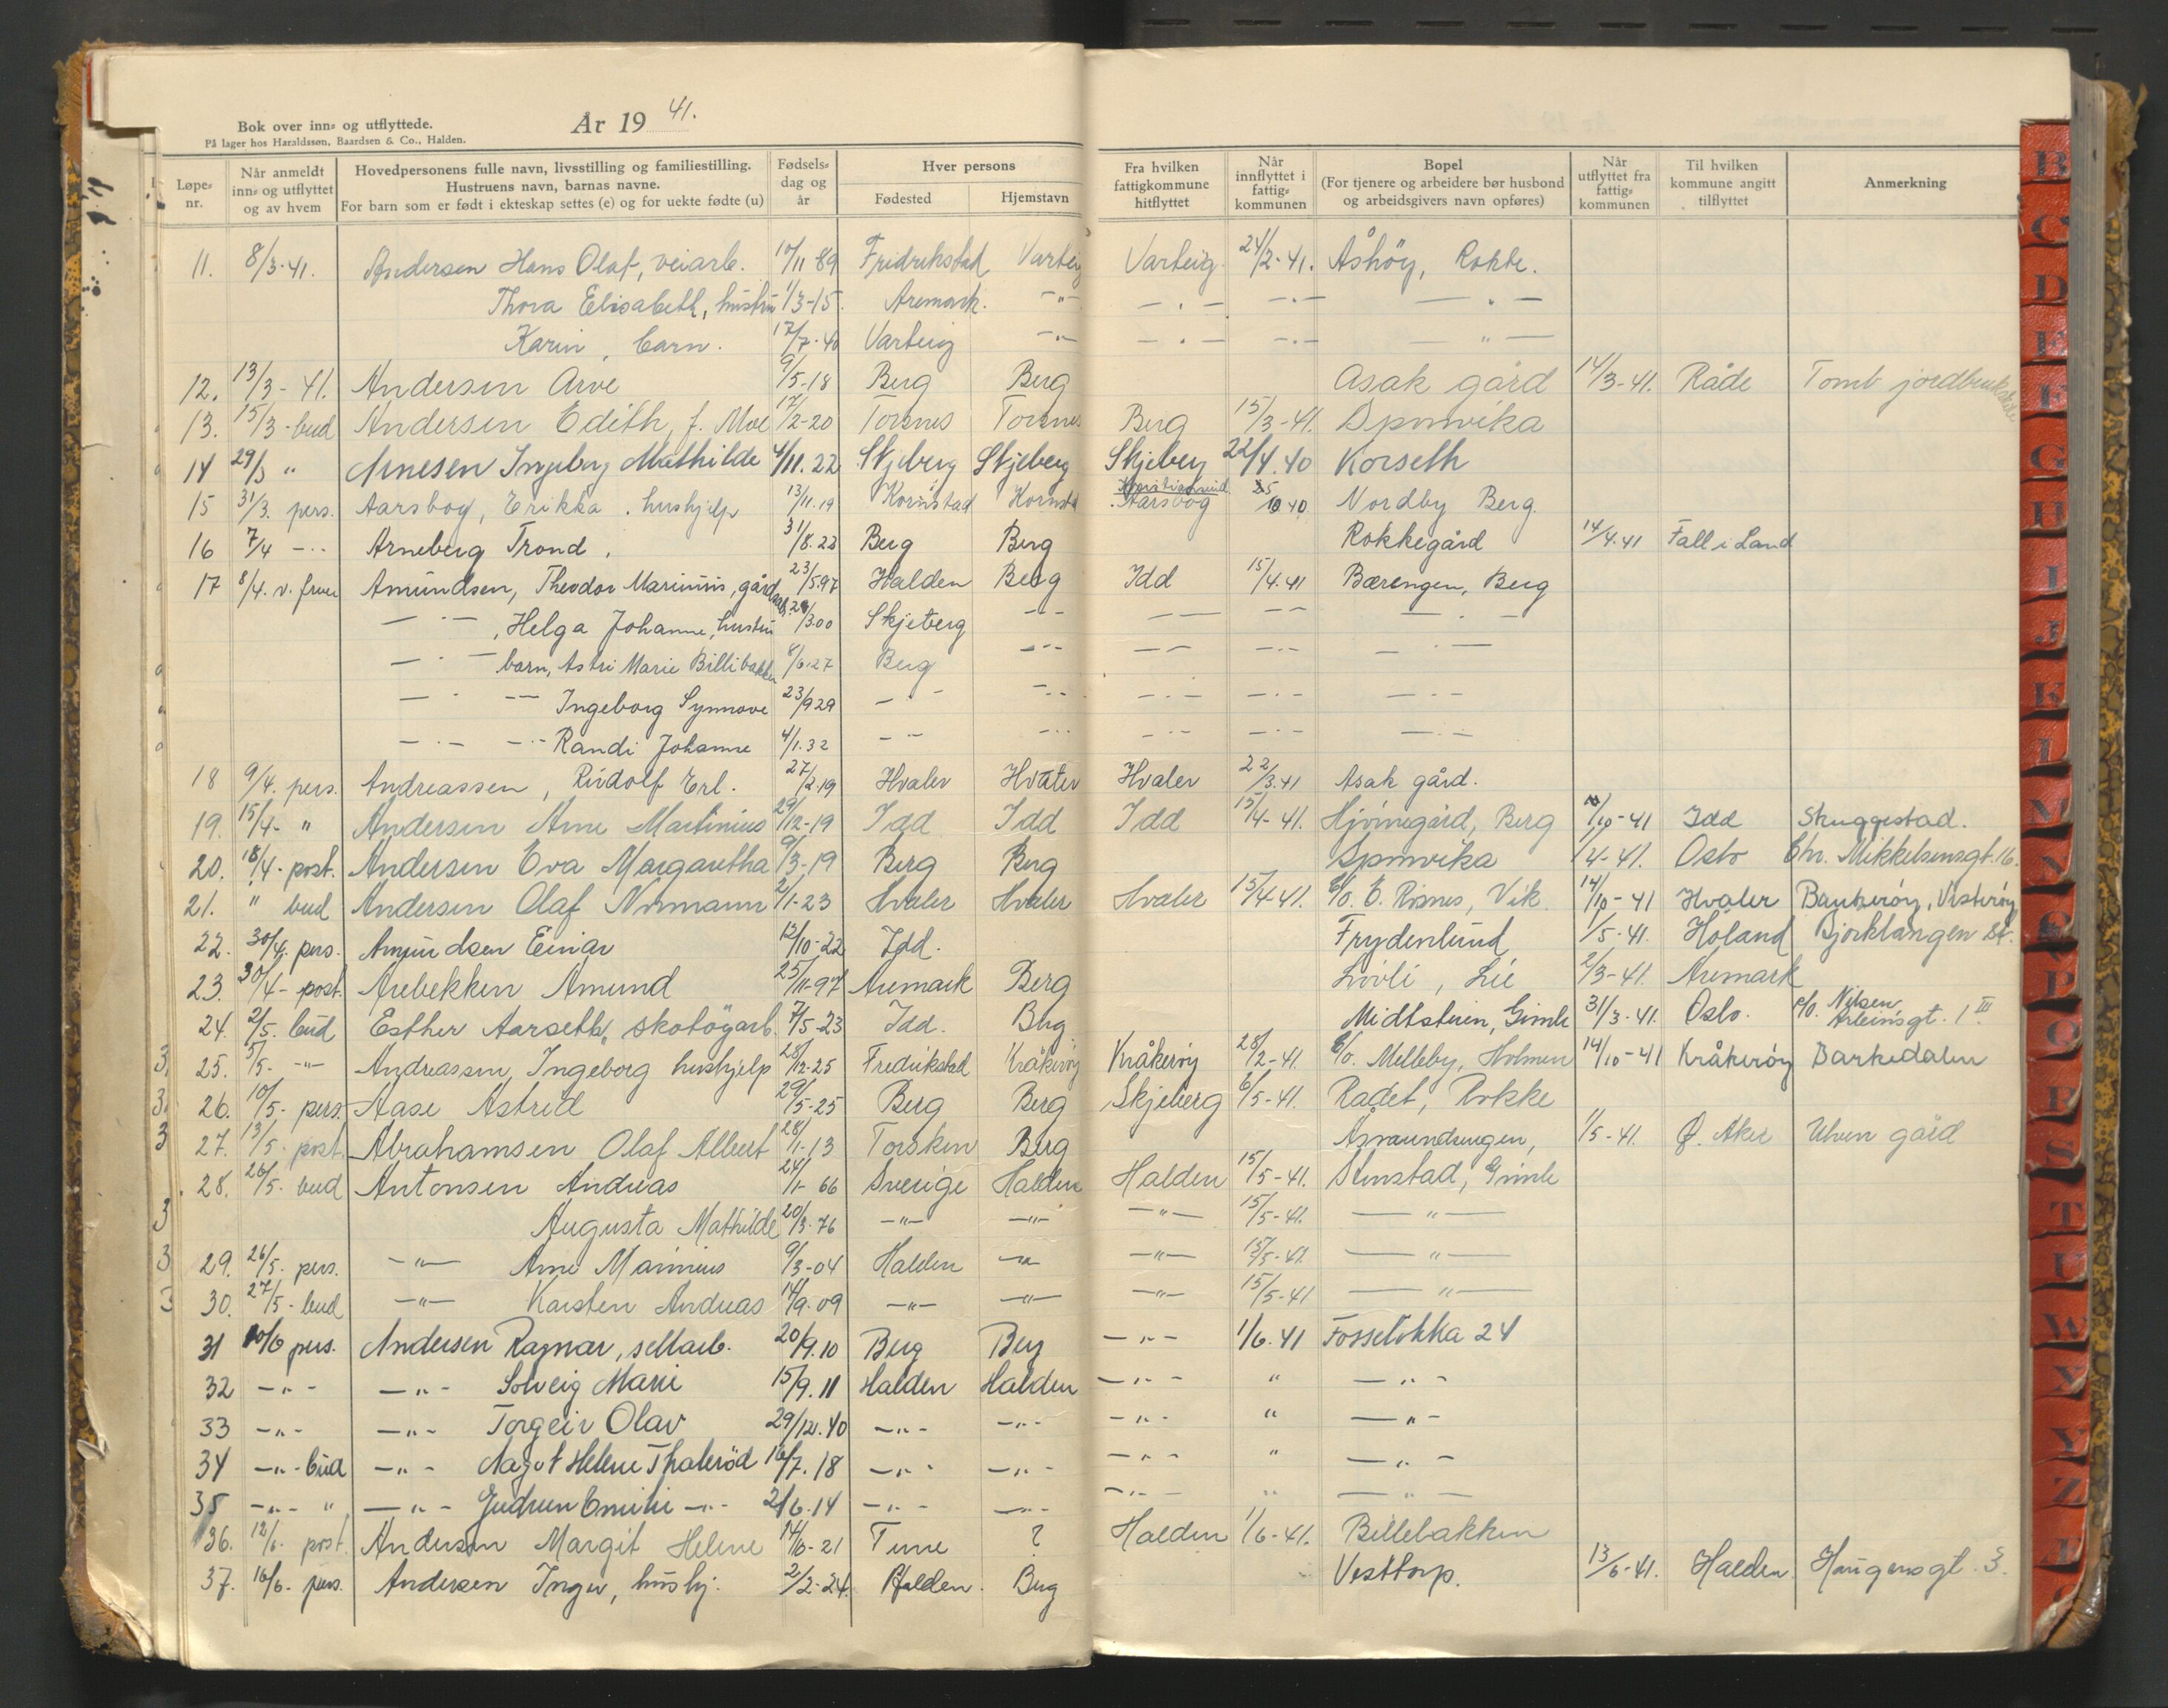 Bok over inn- og utflyttede.
På lager hos Haraldssøn, Baardsen & Co., Halden.
År 19 41.
Løpe-nr. | Når anmeldt inn- og utflyttet og av hvem | Hovedpersonens fulle navn, livsstilling og familiestilling. Hustruens navn, barnas navne. For barn som er født i ekteskap settes (e) og for uekte fødte (u) | Fødsels-dag og år | Hver persons Fødested | Hjemstavn | Fra hvilken fattigkommune hitflyttet | Når innflyttet i fattig-kommunen | Bopel (For tjenere og arbeidere bør husbond og arbeidsgivers navn opføres) | Når utflyttet fra fattig-kommunen | Til hvilken kommune angitt tilflyttet | Anmerkning
11. 8/3-41. Andersen Hans Olaf, veiarb. 10/11 89 Fridrikstad Varteig Varteig 24/2-41. Åshöy, Rokke.
Thora Elisabeth, hustru 1/3-15. Aremark. -"- -"- -"- -"-
Karin, barn. 17/7-40 Varteig -"- -"- -"- -"-
12. 13/3-41. Andersen Arve 9/5-18 Berg Berg Asak gård 14/3-41. Råde Tomb jordbruksskole
13. 15/3-bud Andersen Edith, f. Moe 17/2-20 Torsnes Torsnes Berg 15/3-41. Sponvika
14 29/3 " Arnesen Ingeborg Mathilde 4/11.22 Skjeberg Skjeberg Skjeberg 22/4.40 Korseth
15 31/3. pers. Aarsbog, Erikka, hushjelp 13/11.19 Kornstad Kornstad Kristiansund Aarsbog 25/10 40 Nordby Berg
16 7/4 -"- Arneberg Trond. 31/8.22 Berg Berg Rokkegård 14/4.41 Fall i Land
17 8/4. v. fruen Amundsen, Theodor Marinius, gårdsarb. 23/5.97 Halden Berg Idd 15/4.41 Bærengen, Berg
-"-, Helga Johanne, hustru 28/3.00 Skjeberg -"- -"- -"- -"-
-"- barn, Astri Marie Billibakken 8/6.27 Berg -"- -"- -"- -"-
-"- -"- Ingeborg Synnove 23/9 29 -"- -"- -"- -"- -"-
-"- -"- Randi Johanne 4/1.32 -"- -"- -"- -"- -"-
18 9/4. pers. Andreassen, Rudolf Erl. 27/2.19 Hvaler Hvaler Hvaler 22/3.41 Asak gård.
19. 15/4- " Andersen Arne Martinius 29/12-19 Idd Idd Idd 15/4-41. Hjörnegård, Berg /10-41 Idd Skuggestad.
20. 18/4-post. Andersen Eva Margaretha 9/3-19 Berg Berg Sponvika /4-41. Oslo Chr. Mikkelsensgt. 16.
21. " bud Andersen Olaf Normann 2/1-23 Hvaler Hvaler Hvaler 15/4 41. c/o. E. Risnes, Vik. 14/10-41 Hvaler Bankerøy, Vesterøy
22. 30/4. pers. Amundsen Einar 12/10-22 Idd. Frydenlund 1/5-41. Höland Bjorklangen st.
23. 30/4-post. Arebekken Amund 25/11-97 Aremark Berg Lövli, Lie 2/3-41. Aremark
24. 2/5. bud Esther Aarseth, skotöyarb. 7/5-23 Idd. Berg Midtsteien, Gimle 31/3-41. Oslo. c/o. Nilsen, Arbeinsgt. 1 III
3. 25. 5/5. -"- Andreassen, Ingeborg hushjelp 28/12-25 Fredrikstad Kråkerøy Kråkerøy 28/2-41 c/o. Melleby, Holmen 14/10-41 Kråkerøy Barkedalen
3. 26. 10/5-pers. Aase Astrid 29/5-25 Berg Berg Skjeberg 6/5-41. Radet, Rokke
3 27. 13/5. post. Abrahamsen Olaf Albert 28/1-13 Torsken Berg Asmundrengen, 1/5-41. Ø. Aker Ulven gård
28. 26/5. bud Antonsen Andreas 24/1- 66 Sverige Halden Halden 15/5-41. Stenstad, Gimle
3 Augusta Mathilde 20/3-76 -"- -"- -"- 15/5-41. -"-
3 29. 26/5. pers. -"- Arne Marinius 9/3-04 Halden -"- -"- 15/5-41. -"-
3 30. 27/5-bud -"- Karsten Andreas 14/9-09 -"- -"- -"- 15/5-41 -"-
31 10/6 pers. Andersen Ragnar, sellarb. 20/9.10 Berg Berg -"- 1/6.41 Fosseløkka 24
32 -"- -"- Solveig Marie 15/9.11 Halden Halden -"- " -"-
33 -"- -"- Torgeir Olav 29/12.40 -"- -"- -"- " -"-
34 -"- bud -"- Aagot Helene Thalerød 16/7.18 -"- -"- -"- " -"-
35 -"- " -"- Gudrun Emilie -"- 2/6.14 -"- -"- -"- " -"-
36. 12/6. post. Anderson Margit Helene 14/6-21 Tune ? Halden 1/6-41. Billebakken
37. 16/6. pers. Andersen Inger, hushj. 2/2-24. Halden. Berg Vesttorp. 13/6-41. Halden Haugensgt. 3.
B
C
D
E
F
G
H
I
J
K
L
M
N
O
P
Q
R
S
T
U
W
X
Y
Z